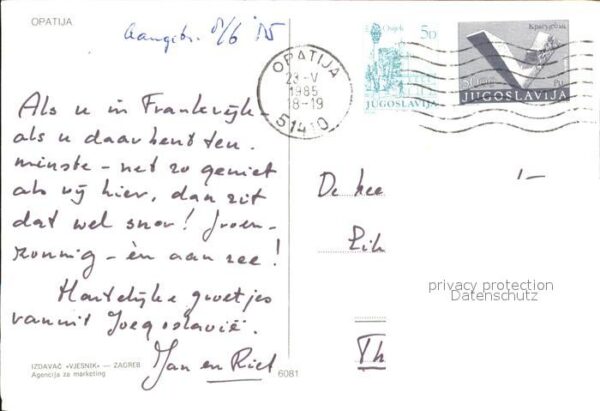 OPATIJA
Aangek. 8/6 '85
OPATIJA
23-V
1985
18-19
51410
Osijek
5D
JUGOSLAVIJA
Kragujevac
JUGOSLAVIJA
Als u in Frankrijk -
als u daar bent ten-
minste - net zo geniet
als wij hier, dan zit
dat wel snor! Groen-
zonnig - èn aan zee!
Hartelijke groetjes
vanuit Joegoslavië.
Jan en Riet
De hee
1-
Th
privacy protection
Datenschutz
IZDAVAČ «VJESNIK» — ZAGREB
Agencija za marketing
6081